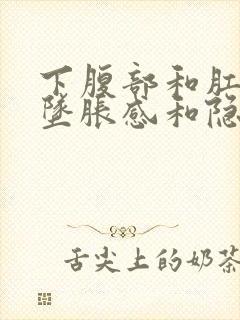 下腹部和肛
坠胀感和隐
舌尖上的奶茶